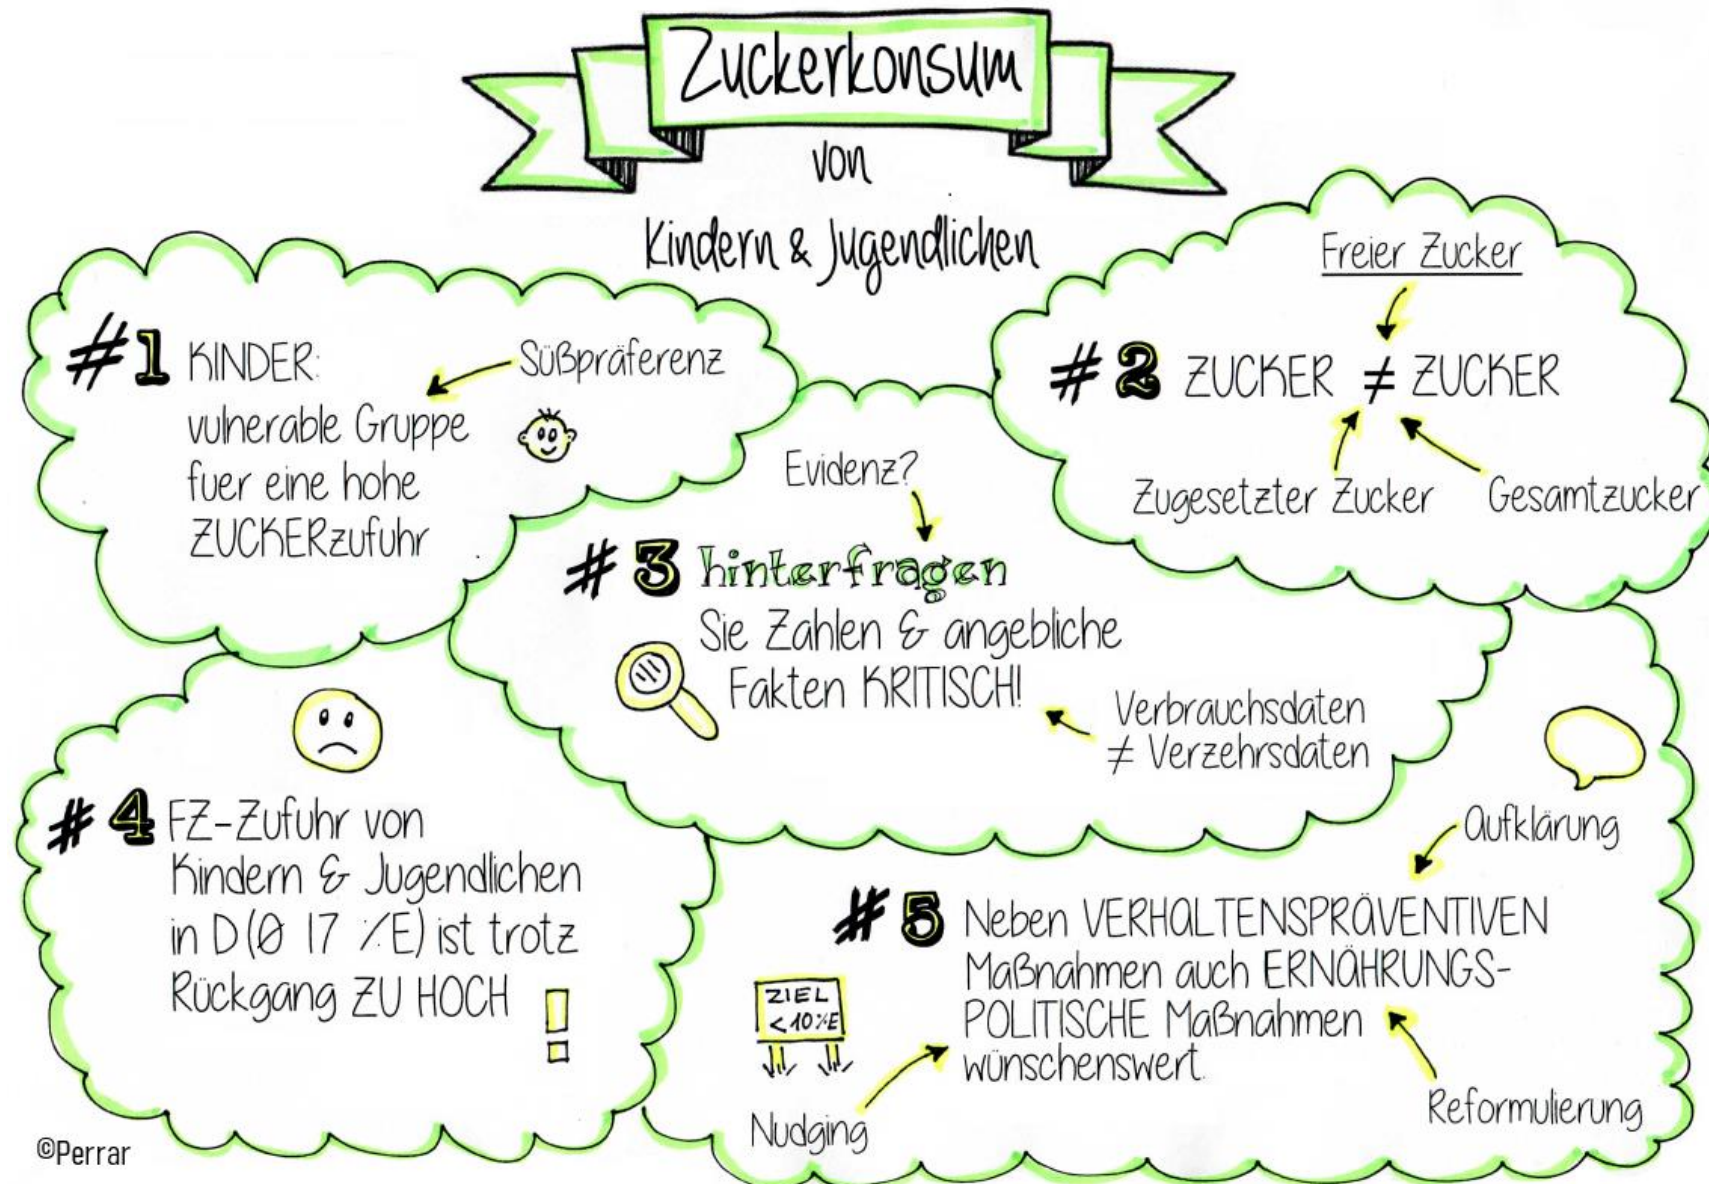 Zuckerkonsum
von
Kindern & Jugendlichen
#1 KINDER:
Süßpräferenz
vulnerable Gruppe
fuer eine hohe
ZUCKERzufuhr
Freier Zucker
#2 ZUCKER ≠ ZUCKER
Zugesetzter Zucker
Gesamtzucker
Evidenz?
#3 hinterfragen
Sie Zahlen & angebliche
Fakten KRITISCH!
Verbrauchsdaten
≠ Verzehrsdaten
#4 FZ-Zufuhr von
Kindern & Jugendlichen
in D (Ø 17 %E) ist trotz
Rückgang ZU HOCH
Aufklärung
#5 Neben VERHALTENSPRÄVENTIVEN
Maßnahmen auch ERNÄHRUNGS-
POLITISCHE Maßnahmen
wünschenswert.
ZIEL
<10%E
Nudging
Reformulierung
©Perrar